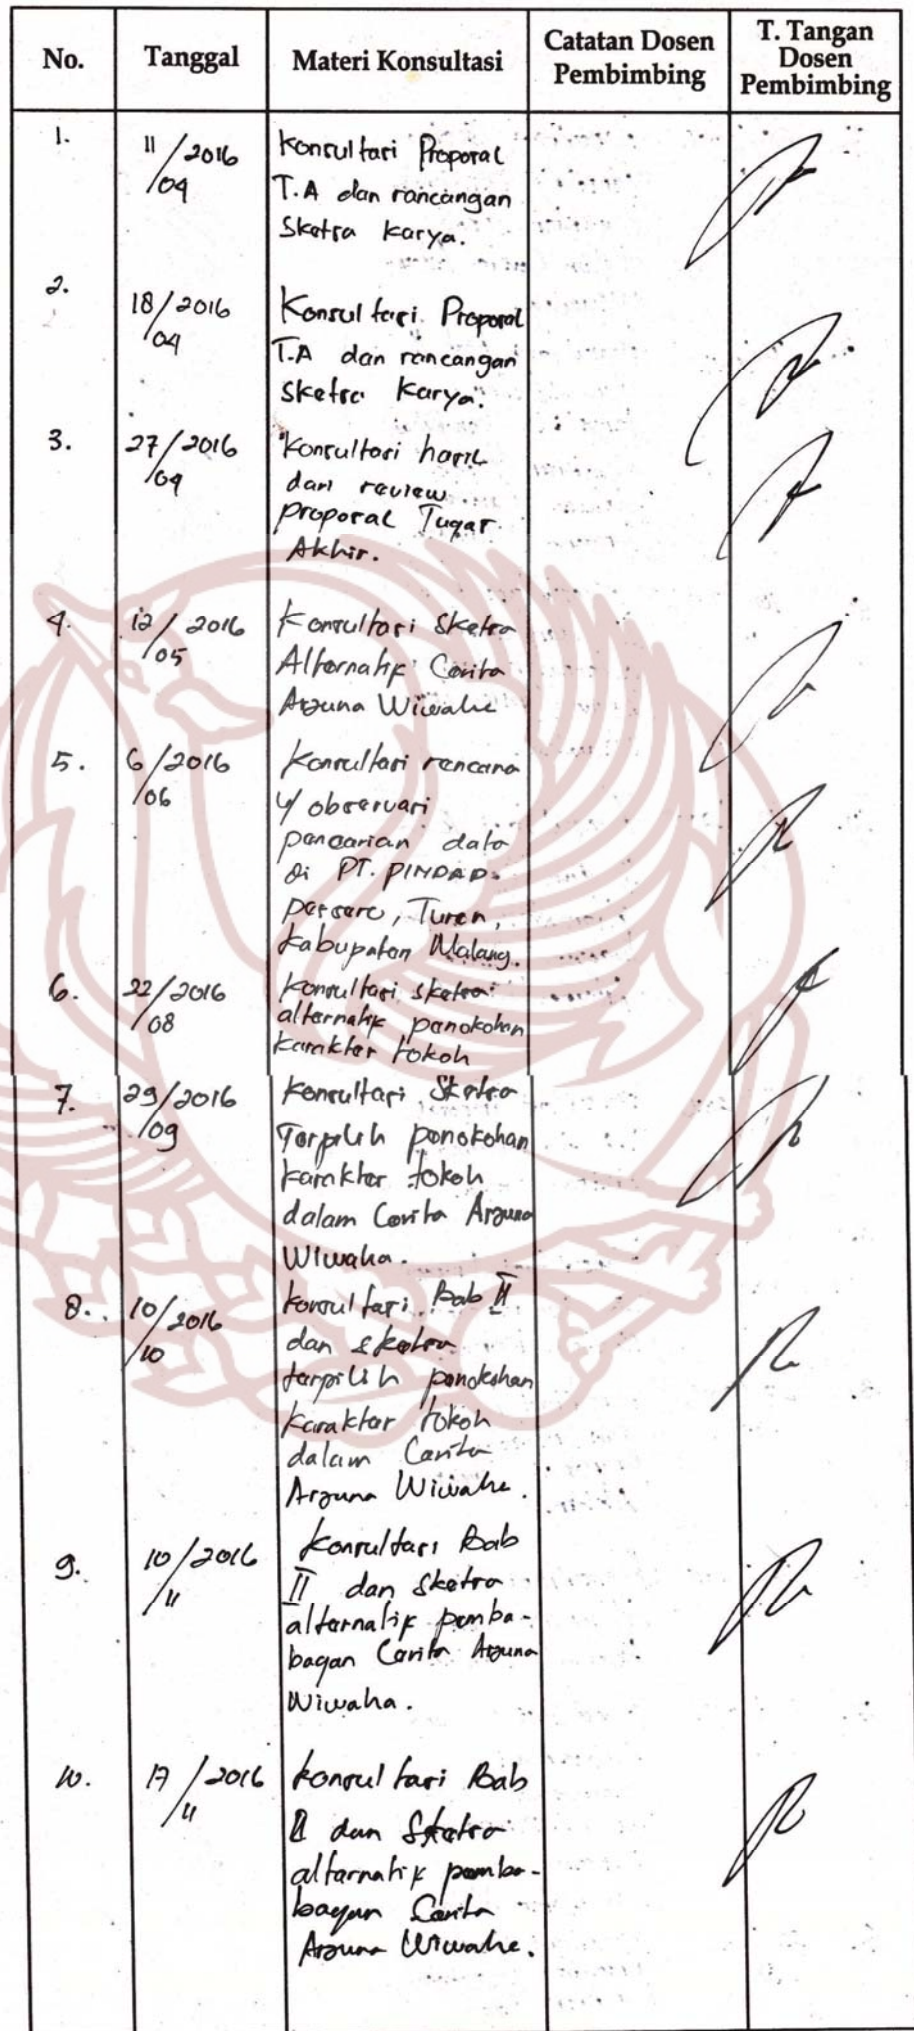 No. Tanggal Materi Konsultasi Catatan Dosen Pembimbing T. Tangan Dosen Pembimbing
1. 11/2016 Konsultasi Proposal
/04 T.A dan rancangan
Sketsa Karya.
2. 18/2016 Konsultasi Proposal
/04 T.A dan rancangan
Sketsa Karya.
3. 27/2016 Konsultasi hasil
/04 dari review
Proposal Tugas
Akhir.
4. 12/2016 Konsultasi Sketsa
/05 Alternatif Cerita
Arjuna Wiwaha
5. 6/2016 Konsultasi rencana
/06 u/ observasi
pencarian data
di PT. PINDAD
persero, Turen,
Kabupaten Malang.
6. 22/2016 Konsultasi sketsa
/08 alternatif penokohan
karakter tokoh
7. 29/2016 Konsultasi Sketsa
/09 Terpilih penokohan
karakter tokoh
dalam Cerita Arjuna
Wiwaha.
8. 10/2016 Konsultasi Bab II
/10 dan sketsa
terpilih penokohan
karakter tokoh
dalam Cerita
Arjuna Wiwaha.
9. 10/2016 Konsultasi Bab
/11 II dan Sketsa
alternatif pemba-
bagan Cerita Arjuna
Wiwaha.
10. 17/2016 Konsultasi Bab
/11 II dan Sketsa
alternatif pemba-
bagan Cerita
Arjuna Wiwaha.